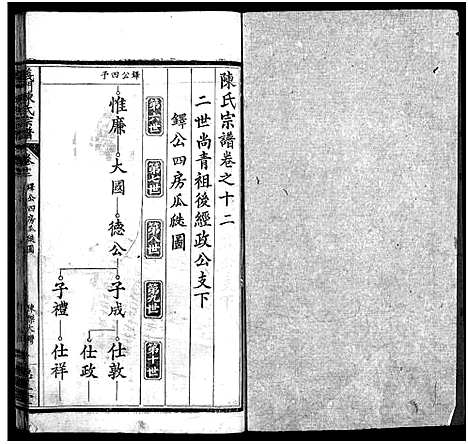 陳氏宗譜卷之十二
二世尚青祖後經政公支下
鐸公四房瓜瓞圖
第六世
第七世
第八世
第九世
第十世
鐸公四子
惟廉
大國
德公
子成
仕敦
仕政
子禮
仕祥
義門陳氏宗譜
卷十二
鐸公四房瓜瓞圖